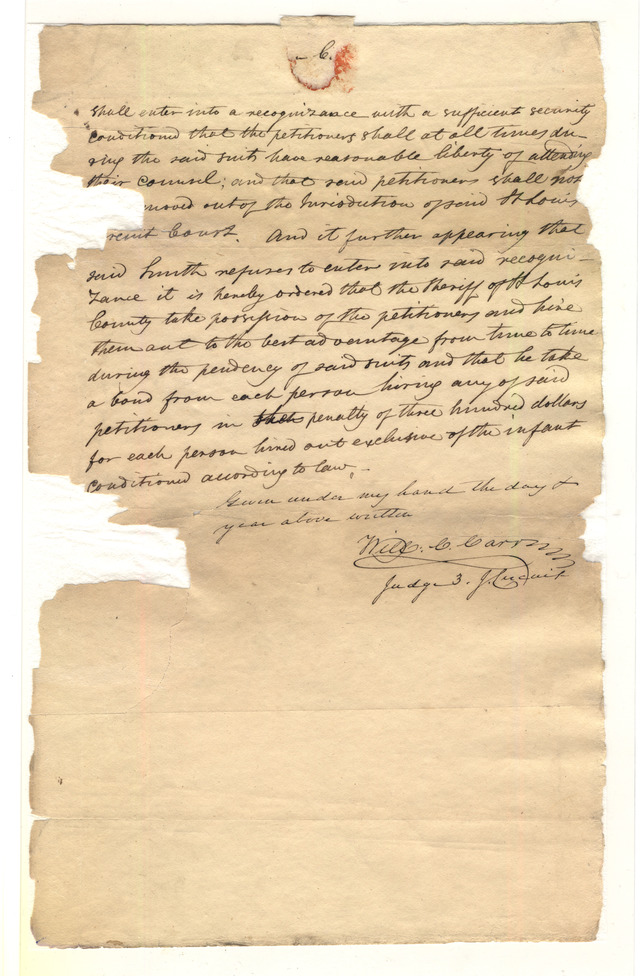 C.
shall enter into a recognizance with a sufficient security
conditioned that the petitioners shall at all times du-
ring the said suits have reasonable liberty of attending
their counsel; and that said petitioners shall not
moved out of the Jurisdiction of said St Louis
rcuit Court. And it further appearing that
said Smith refuses to enter into said recogni-
zance it is hereby ordered that the sheriff of St Louis
County take possession of the petitioners and hire
them out to the best advantage from time to time
during the pendency of said suits and that he take
a bond from each person hiring any of said
petitioners in the penalty of three hundred dollars
for each person hired out exclusive of the infant
conditioned according to law.
Given under my hand the day &
year above written
Will. C. Carr
Judge 3. J. Circuit